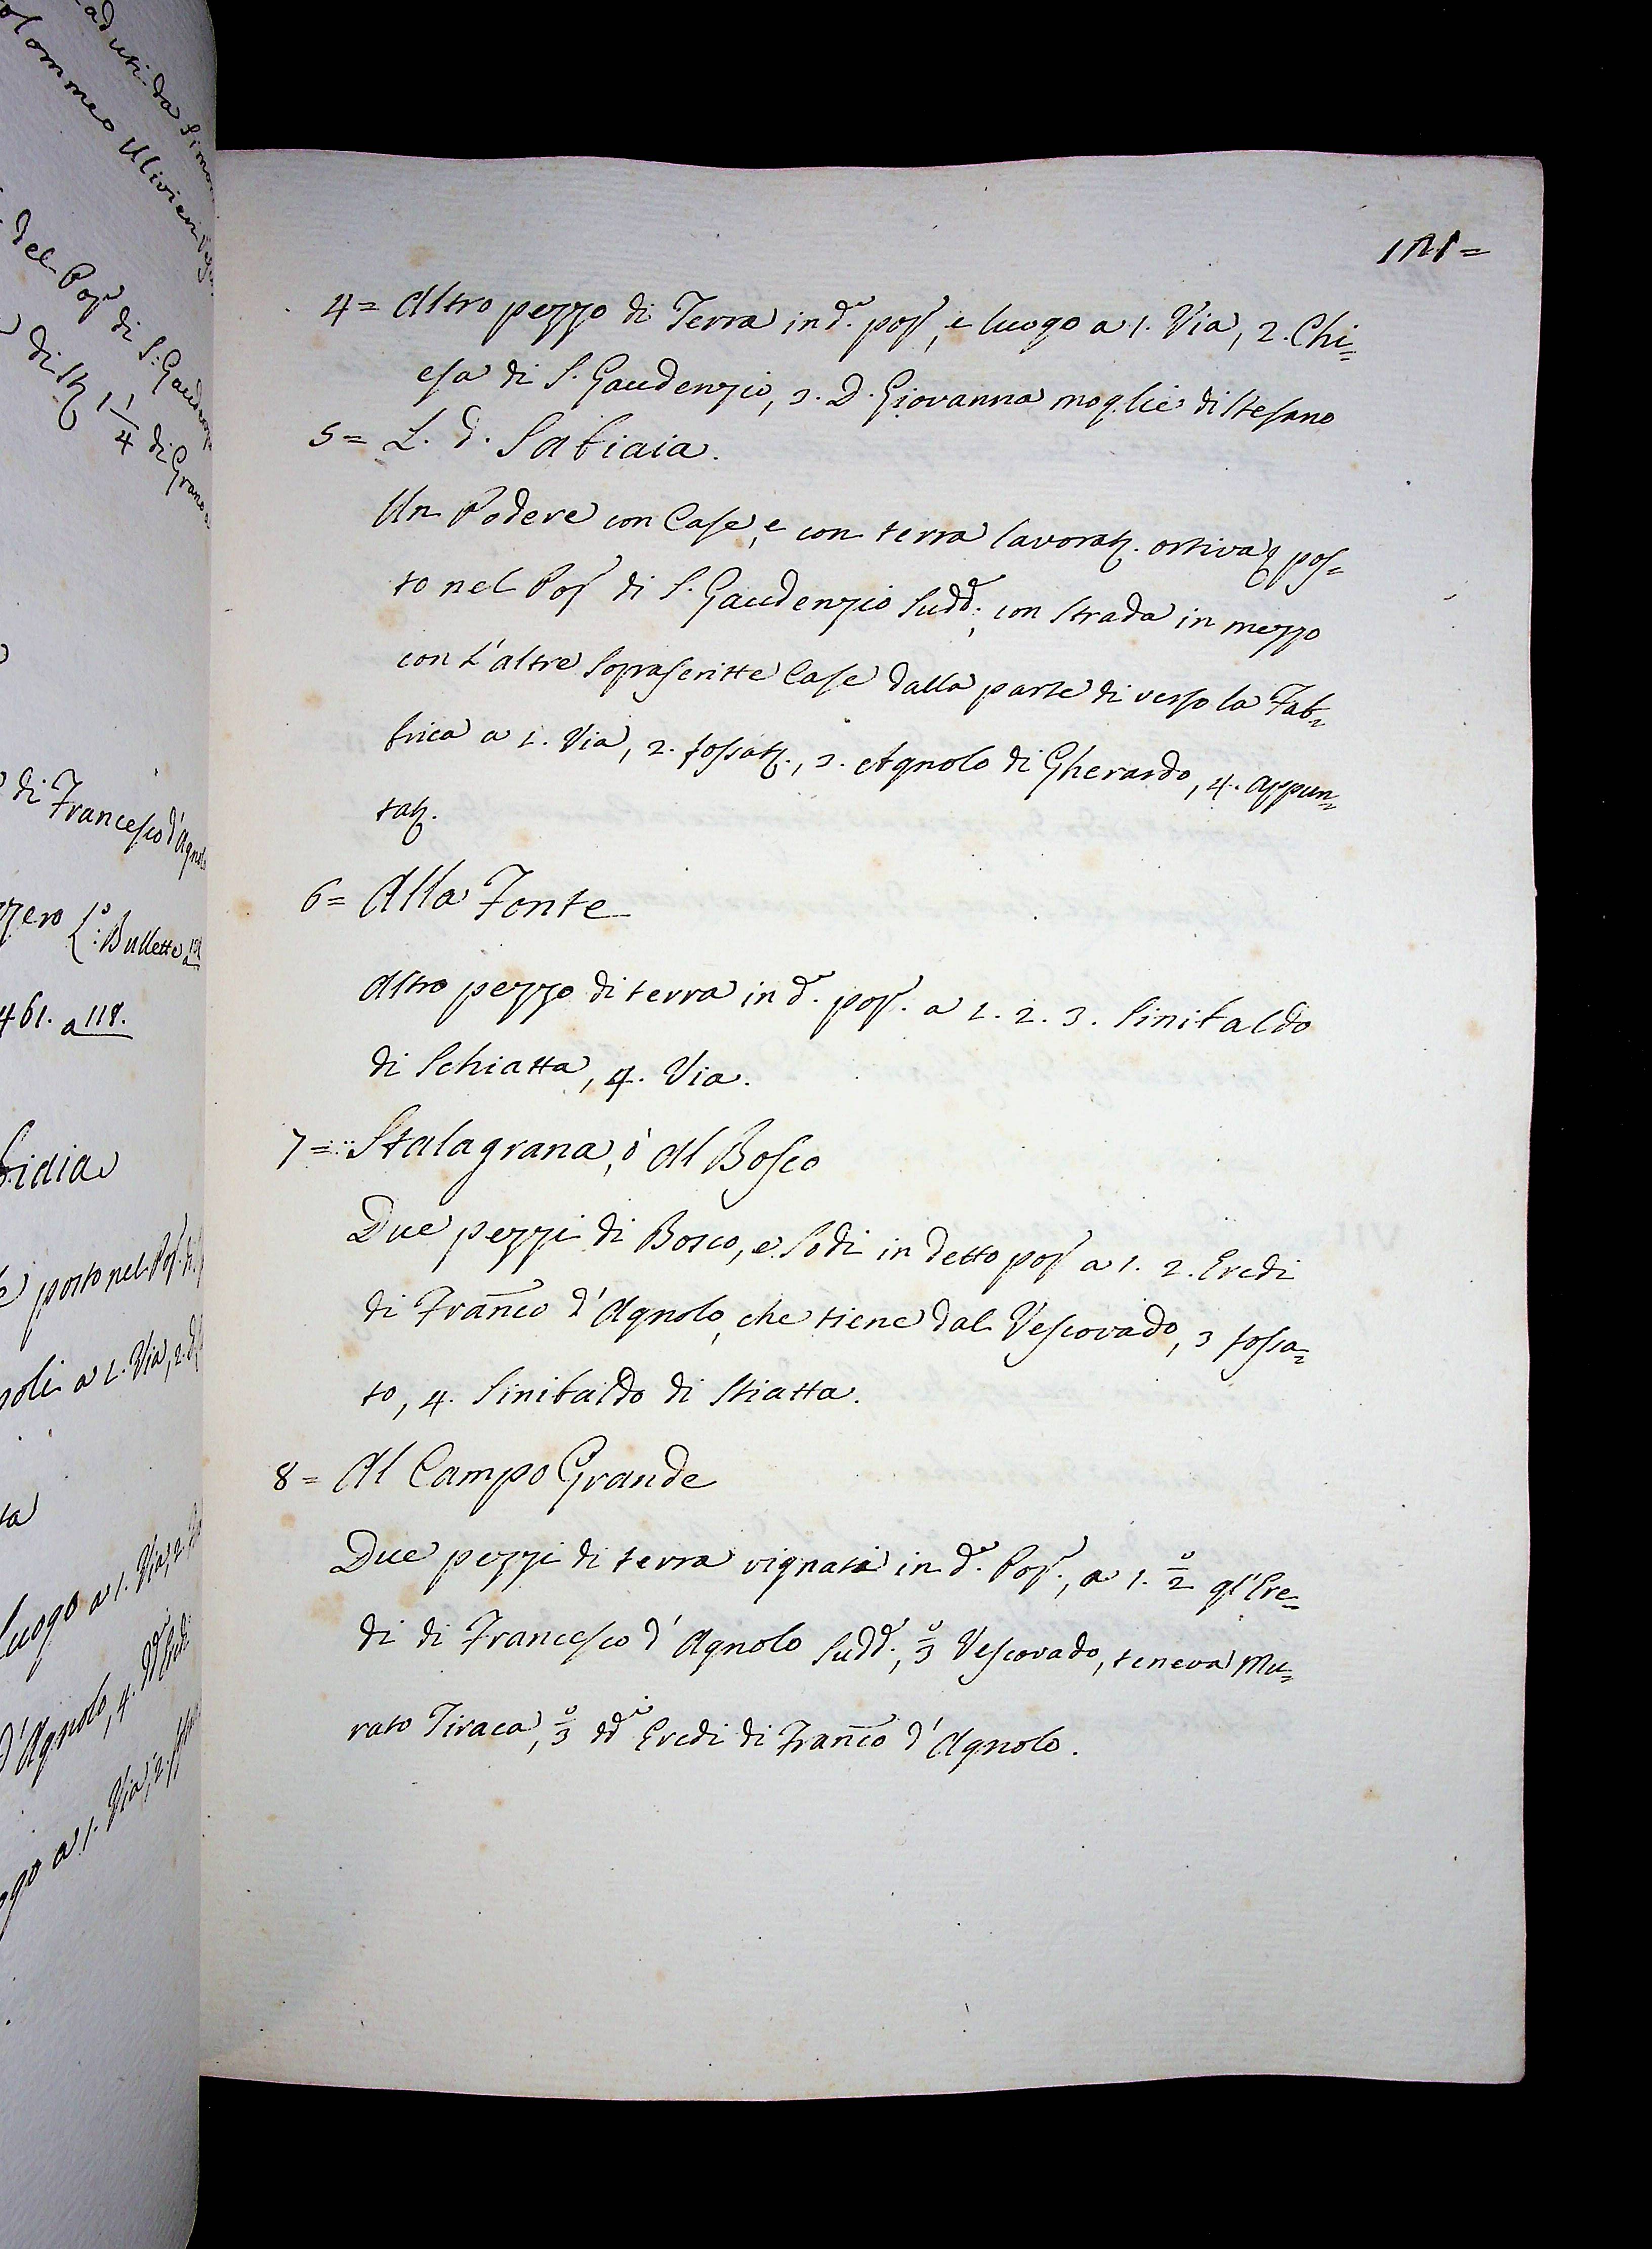 aduti da Simon
olommeo Ulivieri
del Pop.º di S. Gaudenz
di St. 1 1/4 di Grano
di Francesco d'Agnolo
L.º Bullette a 121
461. a 118.
posto nel Pop.
a 1. Via, 2.
luogo a 1. Via, 2.
d'Agnolo, 4. dd.i Eredi
a 1. Via, 2.
121=
4= Altro pezzo di Terra in d.º pop.º, e luogo a 1. Via, 2. Chi=
esa di S. Gaudenzio, 3. D. Giovanna moglie di Stefano
5= L. d. Sabiaia.
Un Podere con Case, e con terra lavorat. ortiva posº
to nel Pop. di S. Gaudenzio Sudd.º; con Strada in mezzo
con L'altre Soprascritte Case dalla parte di verso la Fab=
brica a 1. Via, 2. fossat., 3. Agnolo di Gherardo, 4. appun=
tat.
6= Alla Fonte
Altro pezzo di terra in d.º pop.º a 1. 2. 3. Sinibaldo
di Schiatta, 4. Via.
7= Stalagrana, ò Al Bosco
Due pezzi di Bosco, e Sodi in detto pop. a 1. 2. Eredi
di Franco d'Agnolo, che tiene dal Vescovado, 3 fossa=
to, 4. Sinibaldo di Stiatta.
8= Al Campo Grande
Due pezzi di terra vignata in d.º Pop.º, a 1. 2/º gl'Ere=
di di Francesco d'Agnolo Sudd.º, 3 Vescovado, teneva Mu=
rato Tiraca, 3 dd.i Eredi di Franco d'Agnolo.